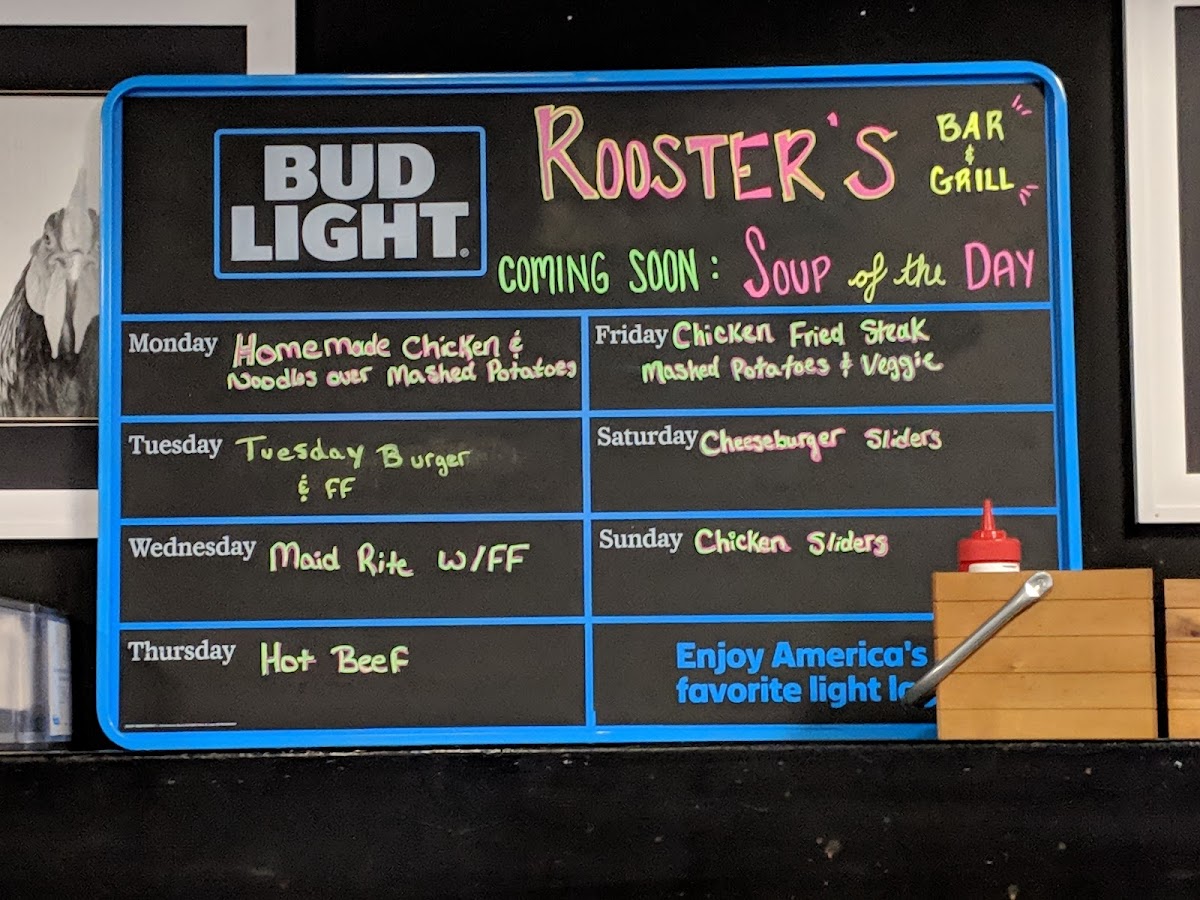 BUD
LIGHT.
ROOSTER'S
BAR
&
GRILL
COMING SOON: SOUP of the DAY
Monday
Homemade Chicken &
Noodles over Mashed Potatoes
Tuesday
Tuesday Burger
& FF
Wednesday
Maid Rite W/FF
Thursday
Hot Beef
Friday
Chicken Fried Steak
Mashed Potatoes & Veggie
Saturday
Cheeseburger Sliders
Sunday
Chicken Sliders
Enjoy America's
favorite light